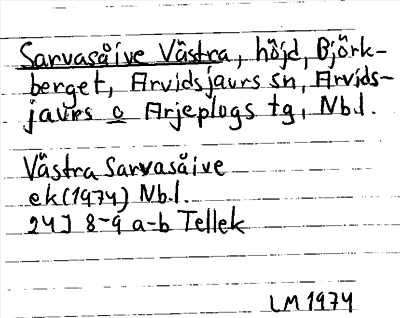 Sarvasåive Västra, höjd, Björk-
berget, Arvidsjaurs sn, Arvids-
jaurs o Arjeplogs tg, Nb.l.
Västra Sarvasåive
ek (1974) Nb.l.
24J 8-9 a-b Tellek
LM 1974